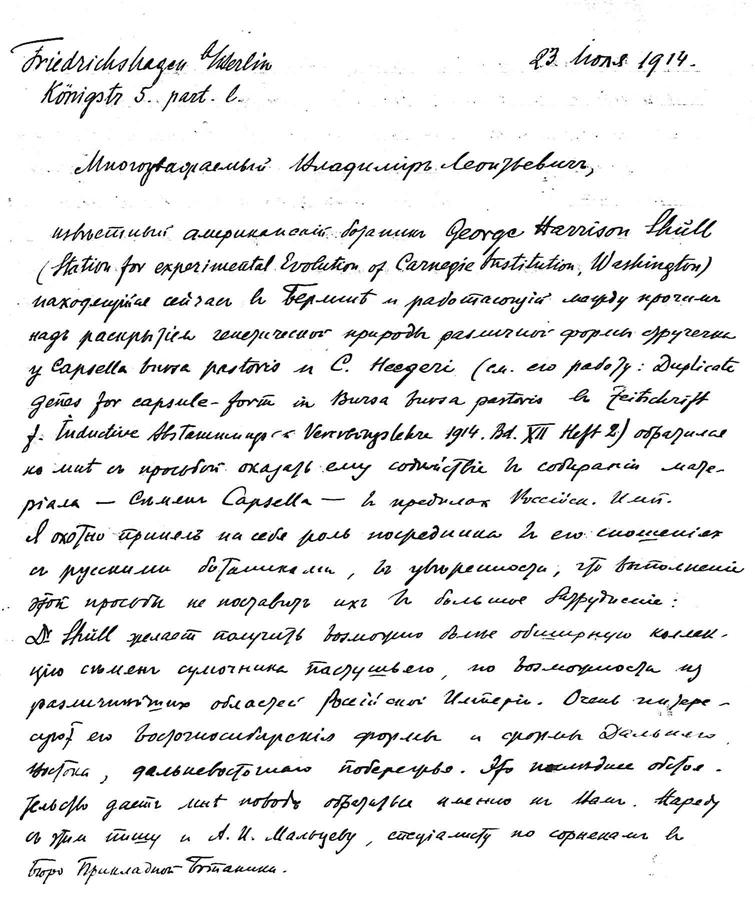 Friedrichshagen b/Berlin
Königstr 5. part. l.
23 Июля 1914.
Многоуважаемый Владимиръ Леонтьевичъ,
извѣстный американскій ботаникъ George Harrison Shull
(Station for experimental Evolution of Carnegie Institution, Washington)
находящійся сейчасъ въ Берлинѣ и работающій между прочимъ
надъ раскрытіемъ генетической природы различной формы стручечка
у Capsella bursa pastoris и C. Heegeri (см. его работу: Duplicate
genes for capsule-form in Bursa bursa pastoris въ Zeitschrift
f. Inductive Abstammungs- u Vererbungslehre 1914. Bd. XII Heft 2) обратился
ко мнѣ съ просьбой оказать ему содѣйствіе въ собираніи мате-
ріала — сѣмянъ Capsella — въ предѣлах Россійск. Имп.
Я охотно принялъ на себя роль посредника въ его сношеніях
съ русскими ботаниками, въ увѣренности, что выполненіе
этой просьбы не поставитъ ихъ въ большое затрудненіе:
Dr Shull желаетъ получить возможно более обширную коллек-
цію сѣмянъ сумочника пастушьего, по возможности из
различнѣйших областей Россійской Имперіи. Очень интере-
суютъ его восточносибирскія формы и формы Дальнего
Востока, дальневосточнаго побережья. Это последнее обстоя-
тельство даетъ мнѣ поводъ обратиться именно къ Вамъ. Наряду
съ этим пишу и А. И. Мальцеву, спеціалисту по сорнякамъ въ
Бюро Прикладной Ботаники.